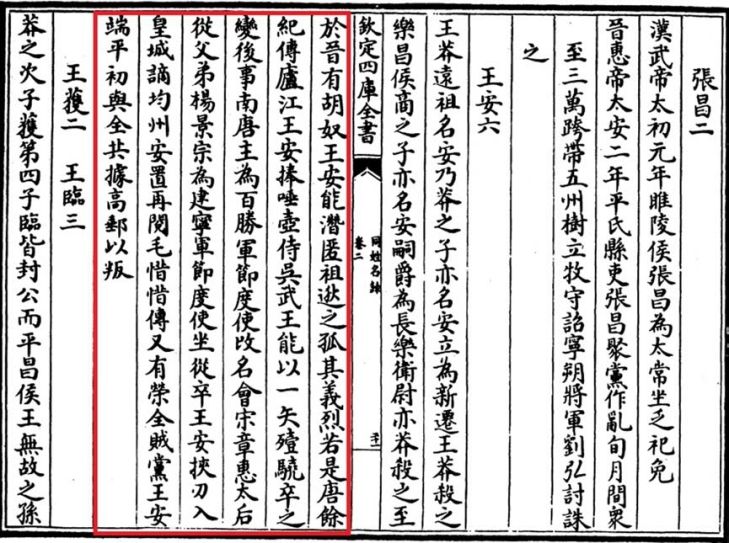 張昌二
漢武帝太初元年睢陵侯張昌為太常坐乏祀免
晉惠帝太安二年平氏縣吏張昌聚黨作亂旬月間衆
至三萬跨帶五州樹立牧守詔寧朔將軍劉弘討誅
之
王安六
王莽遠祖名安乃莽之子亦名安立為新遷王莽殺之
樂昌侯商之子亦名安嗣爵為長樂衛尉亦莽殺之至
欽定四庫全書
同姓名錄
卷二
於晉有胡奴王安能潛匿祖逖之孤其義烈若是唐餘
紀傳廬江王安捧唾壺侍吳武王能以一矢殪驍卒之
變後事南唐主為百勝軍節度使改名會宋章惠太后
從父弟楊景宗為建寧軍節度使坐從卒王安挾刃入
皇城謫均州安置再閱毛惜惜傳又有榮全賊黨王安
端平初與全共據高郵以叛
王獲二 王臨三
莽之次子獲第四子臨皆封公而平昌侯王無故之孫